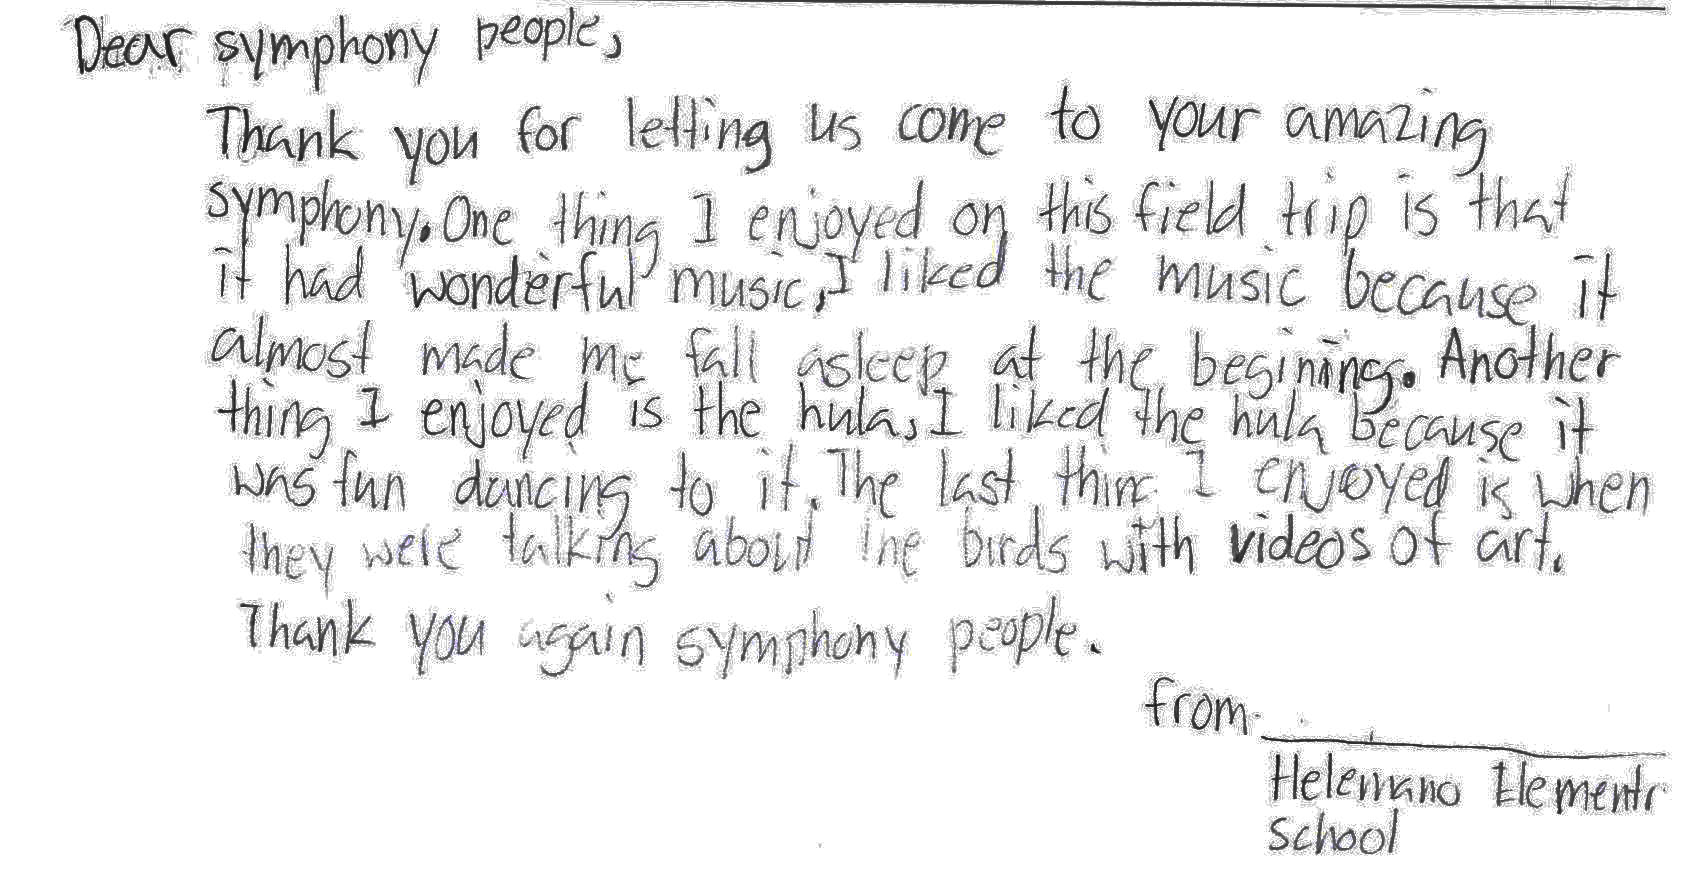 Dear symphony people,
Thank you for letting us come to your amazing
symphony. One thing I enjoyed on this field trip is that
it had wonderful music, I liked the music because it
almost made me fall asleep at the begining. Another
thing I enjoyed is the hula, I liked the hula because it
was fun dancing to it. The last thing I enjoyed is when
they were talking about the birds with videos of art.
Thank you again symphony people.
from
Helemano Elementr
School